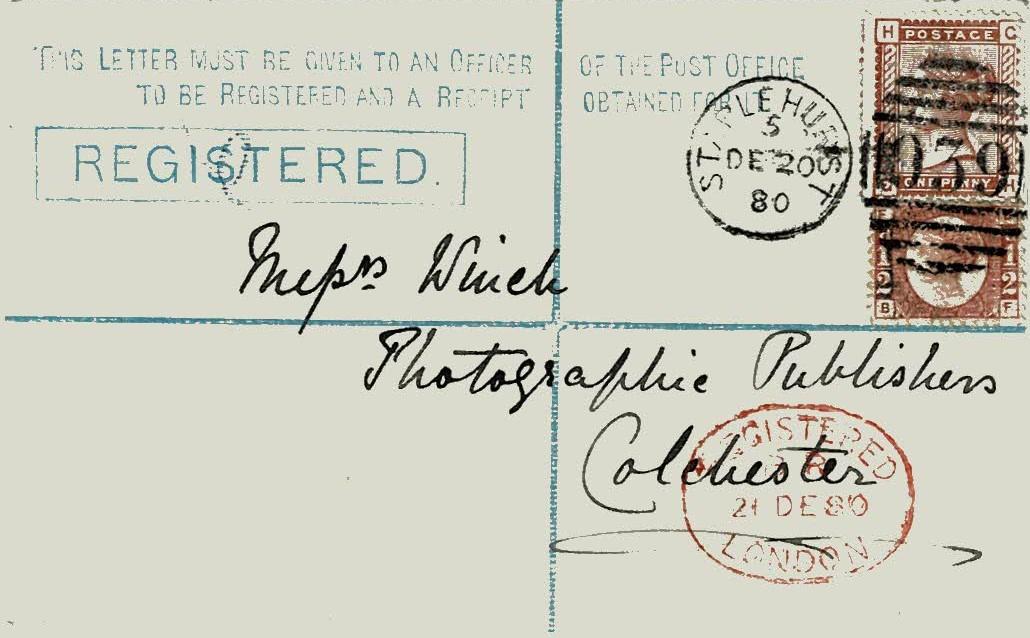 THIS LETTER MUST BE GIVEN TO AN OFFICER OF THE POST OFFICE
TO BE REGISTERED AND A RECEIPT OBTAINED FOR IT
REGISTERED.
STAPLEHURST
5
DE 20
80
H POSTAGE C
939
ONE PENNY H
1 2 1 2
B F
Messrs Winch
Photographic Publishers
Colchester
REGISTERED
21 DE 80
LONDON